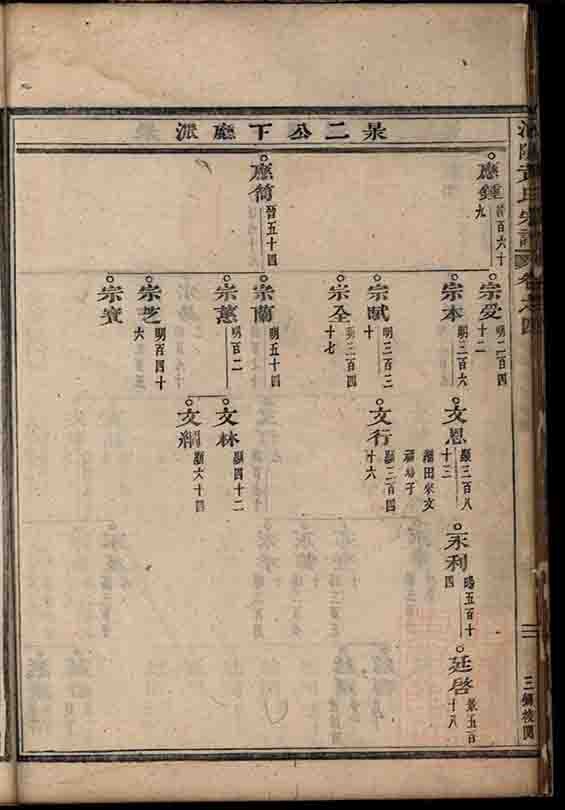 景二公下廳派
應鍾
晉百六十
九
應筒
晉五十四
宗受
明二百四
十二
宗本
明三百六
宗賦
明三百三
十
宗全
明三百四
十七
宗蘭
明五十四
宗蕙
明百二
宗芝
明百四十
六
宗㝎
文恩
顯三百八
十三
文行
顯三百四
十六
文林
顯四十二
文綱
顯六十四
永利
暘五百十
四
廷啓
景五百
十八
卷之四
二